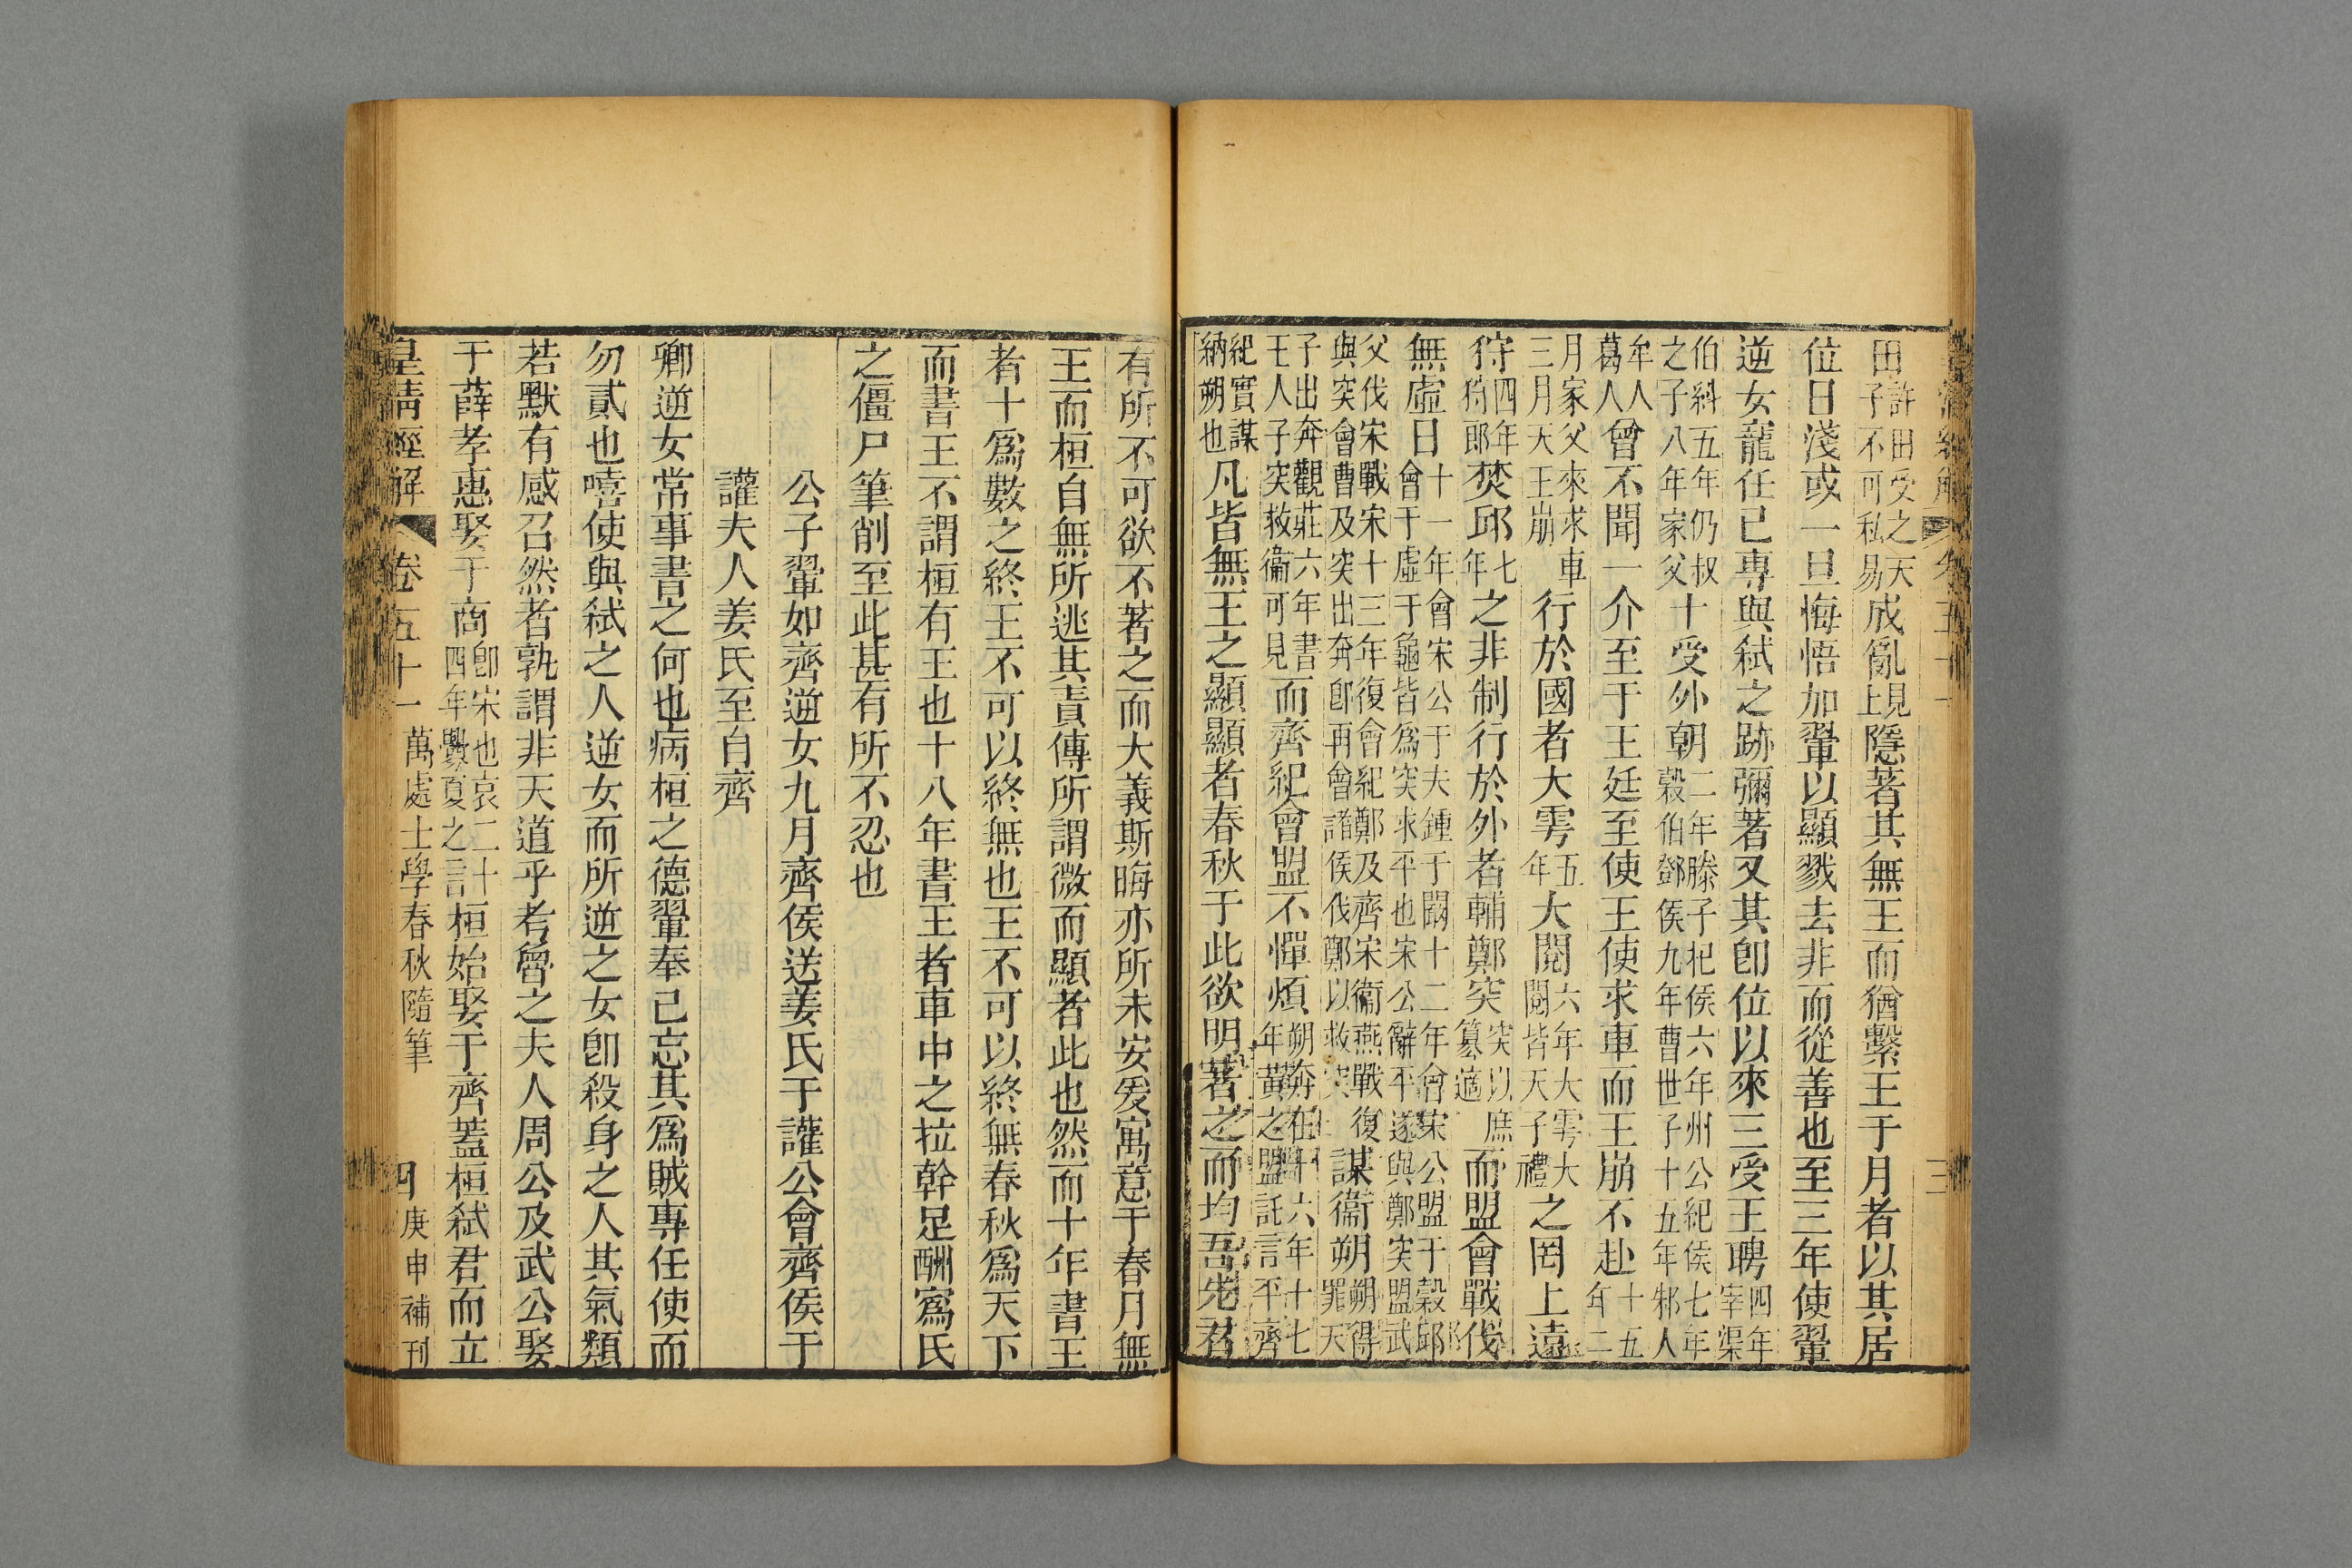 田許田受之天子不可私易成亂見上隱著其無王而猶繫王于月者以其居
位日淺或一旦悔悟加翬以顯戮去非而從善也至三年使翬
逆女寵任已專與弒之跡彌著又其卽位以來三受王聘四年宰渠
伯糾五年仍叔之子八年家父十受外朝二年滕子杞侯六年州公紀侯七年穀伯鄧侯九年曹世子十五年邾人
牟人葛人曾不聞一介至于王廷至使王使求車而王崩不赴十五年二
月家父來求車三月天王崩行於國者大雩五年大閱六年大雩大閱皆天子禮之罔上遠
狩四年狩郎焚邱七年之非制行於外者輔鄭突突以庶篡適而盟會戰伐
無虛日十一年會宋公于夫鍾于闞十二年會宋公盟于穀邱會于虛于龜皆爲突求平也宋公辭平遂與鄭突盟武
父伐宋戰宋十三年復會紀鄭及齊宋衞燕戰復與突會曹及突出奔卽再會諸侯伐鄭以救突謀衞朔朔得罪天
子出奔觀莊六年書王人子突救衞可見而齊紀會盟不憚煩朔奔在十六年十七年黃之盟託言平齊
紀實謀納朔也凡皆無王之顯顯者春秋于此欲明著之而均吾先君
有所不可欲不著之而大義斯晦亦所未安爰寓意于春月無
王而桓自無所逃其責傳所謂微而顯者此也然而十年書王
者十爲數之終王不可以終無也王不可以終無春秋爲天下
而書王不謂桓有王也十八年書王者車中之拉幹足酬寪氏
之僵尸筆削至此甚有所不忍也
公子翬如齊逆女九月齊侯送姜氏于讙公會齊侯于
讙夫人姜氏至自齊
卿逆女常事書之何也病桓之德翬奉已忘其爲賊專任使而
勿貳也嘻使與弒之人逆女而所逆之女卽殺身之人其氣類
若默有感召然者孰謂非天道乎考魯之夫人周公及武公娶
于薛孝惠娶于商卽宋也哀二十四年釁夏之言桓始娶于齊蓋桓弒君而立
皇淸經解 卷五十一 萬處士學春秋隨筆 四 庚申補刊